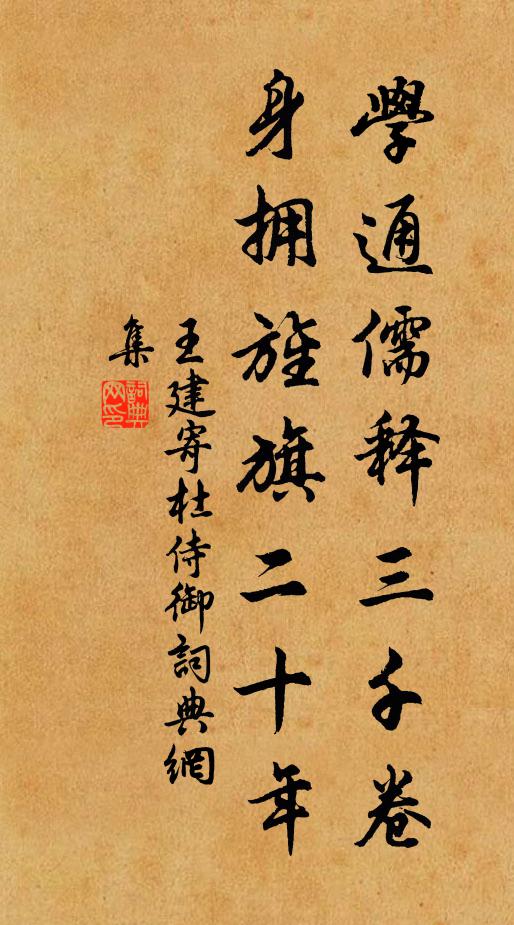 學通儒釋三千卷
身拥旌旗二十年
王建寄杜侍御詞典網
集
詞典
网印